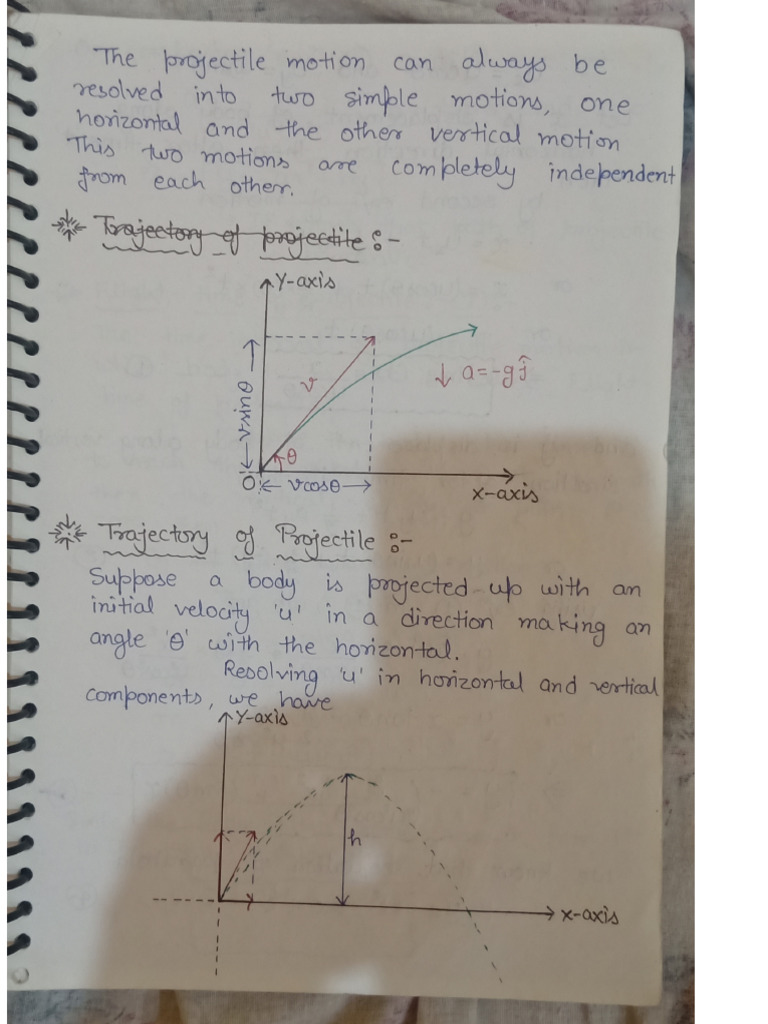 The projectile motion can always be
resolved into two simple motions, one
horizontal and the other vertical motion
This two motions are completely independent
from each other.
Trajectory of projectile :-
Y-axis
v
a = -gĵ
vsinθ
θ
O
vcosθ
x-axis
Trajectory of Projectile :-
Suppose a body is projected up with an
initial velocity 'u' in a direction making an
angle 'θ' with the horizontal.
Resolving 'u' in horizontal and vertical
components, we have
Y-axis
h
x-axis